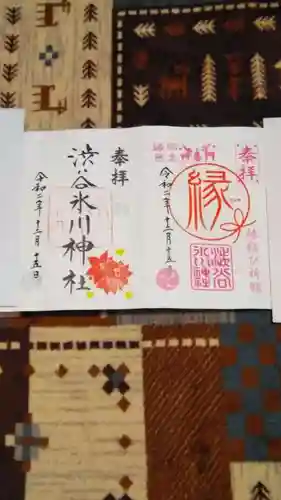 奉拝
渋谷氷川神社
令和二年十二月十五日
奉拝
縁
縁結び祈願
令和二年十二月十五日
渋谷
氷川神社